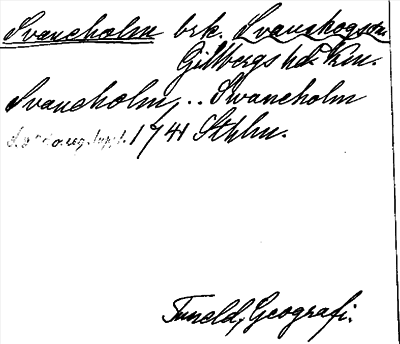 Svaneholm brk. Svanskogs sn.
Gillbergs hd. Krm.
Svaneholm, .. Swaneholm
1741 Sthlm.
Tuneld, Geografi.